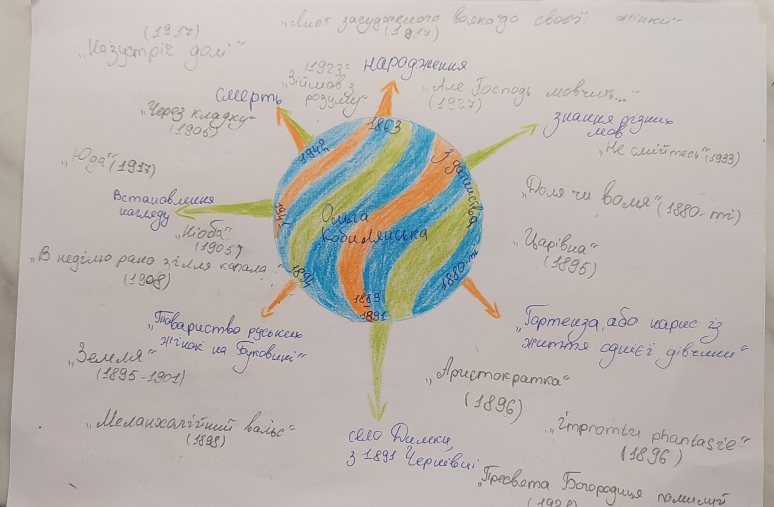 (1917)
„Назустріч долі“
„Лист засудженого вояка до своєї жінки“
(1917)
(1923=
„Зійшов з
розуму“
народження
смерть
„Але Господь мовчить...“
(1927)
„Через кладку“
(1905)
знання різних
мов
„Не смійтесь“ (1933)
1863
1942
З дитинства
„Юда“ (1917)
Встановлення
нагляду
„Ніоба“
(1905)
Ольга
Кобилянська
„Доля чи воля“ (1880-ті)
„Царівна“
(1895)
„В неділю рано зілля копала...“
(1908)
1894
1880-ті
1889
1891
„Товариство руських
жінок на Буковині“
„Гортенза, або нарис із
життя однієї дівчини“
„Земля“
(1895-1901)
„Аристократка“
(1896)
„Меланхолійний вальс“
(1898)
село Димки,
з 1891 Чернівці
„Impromtu phantasie“
(1896)
„Пресвята Богородице помилуй